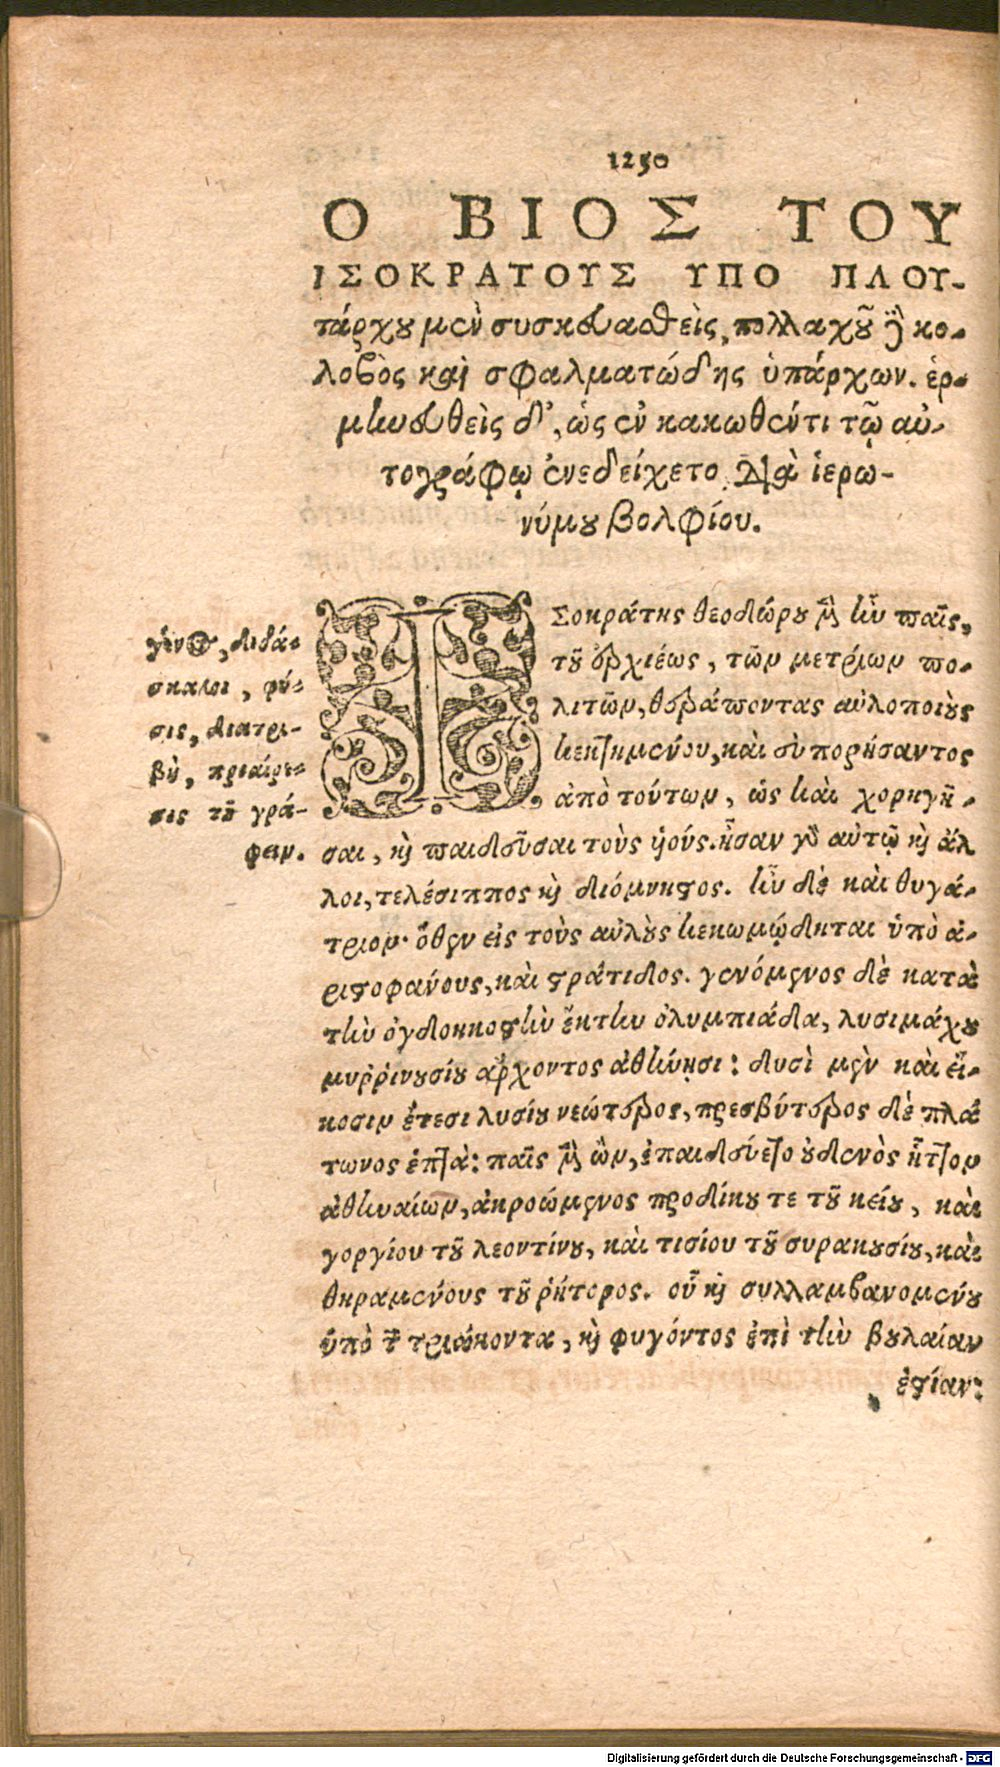 1250
Ο ΒΙΟΣ ΤΟΥ
ΙΣΟΚΡΑΤΟΥΣ ΥΠΟ ΠΛΟΥ-
τάρχου μὲν συσκευασθεὶς, πολλαχοῦ δὲ κο-
λοβὸς καὶ σφαλματώδης ὑπάρχων. ἑρ-
μηνευθεὶς δ', ὡς ἐν κακωθέντι τῷ αὐ-
τογράφῳ ἐνεδείχετο, διὰ ἱερω-
νύμου βολφίου.
γένος, διδά-
σκαλοι, φύ-
σις, διατρι-
βὴ, προαίρε-
σις τοῦ γρά-
φειν.
ΙΣοκράτης θεοδώρου μὲν ἦν παῖς,
τοῦ ἐρχιέως, τῶν μετρίων πο-
λιτῶν, θεράποντας αὐλοποιοὺς
κεκτημένου, καὶ εὐπορήσαντος
ἀπὸ τούτων, ὡς καὶ χορηγῆ-
σαι, καὶ παιδεῦσαι τοὺς υἱούς. ἦσαν γὰρ αὐτῷ καὶ ἄλ
λοι, τελέσιππος καὶ διόμνηστος. ἦν δὲ καὶ θυγά-
τριον· ὅθεν εἰς τοὺς αὐλοὺς κεκωμῴδηται ὑπὸ ἀ-
ριστοφάνους, καὶ στράτιδος. γενόμενος δὲ κατὰ
τὴν ὀγδοηκοστὴν ἕκτην ὀλυμπιάδα, λυσιμάχου
μυῤῥινουσίου ἄρχοντος ἀθήνησι: δυσὶ μὲν καὶ εἴ-
κοσιν ἔτεσι λυσίου νεώτερος, πρεσβύτερος δὲ πλά
τωνος ἑπτά: παῖς μὲν ὢν, ἐπαιδεύετο οὐδενὸς ἧττον
ἀθηναίων, ἀκροώμενος προδίκου τε τοῦ κείου, καὶ
γοργίου τοῦ λεοντίνου, καὶ τισίου τοῦ συρακουσίου, καὶ
θηραμένους τοῦ ῥήτορος. οὗ καὶ συλλαμβανομένου
ὑπὸ τῶν τριάκοντα, καὶ φυγόντος ἐπὶ τὴν βουλαίαν
ἑστίαν:
Digitalisierung gefördert durch die Deutsche Forschungsgemeinschaft - DFG